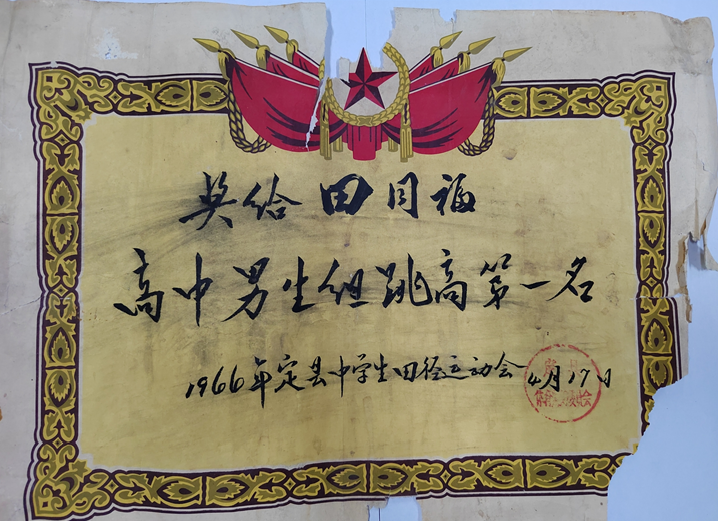 奖给 田同福
高中男生组跳高第一名
1966年定县中学生田径运动会 4月17日